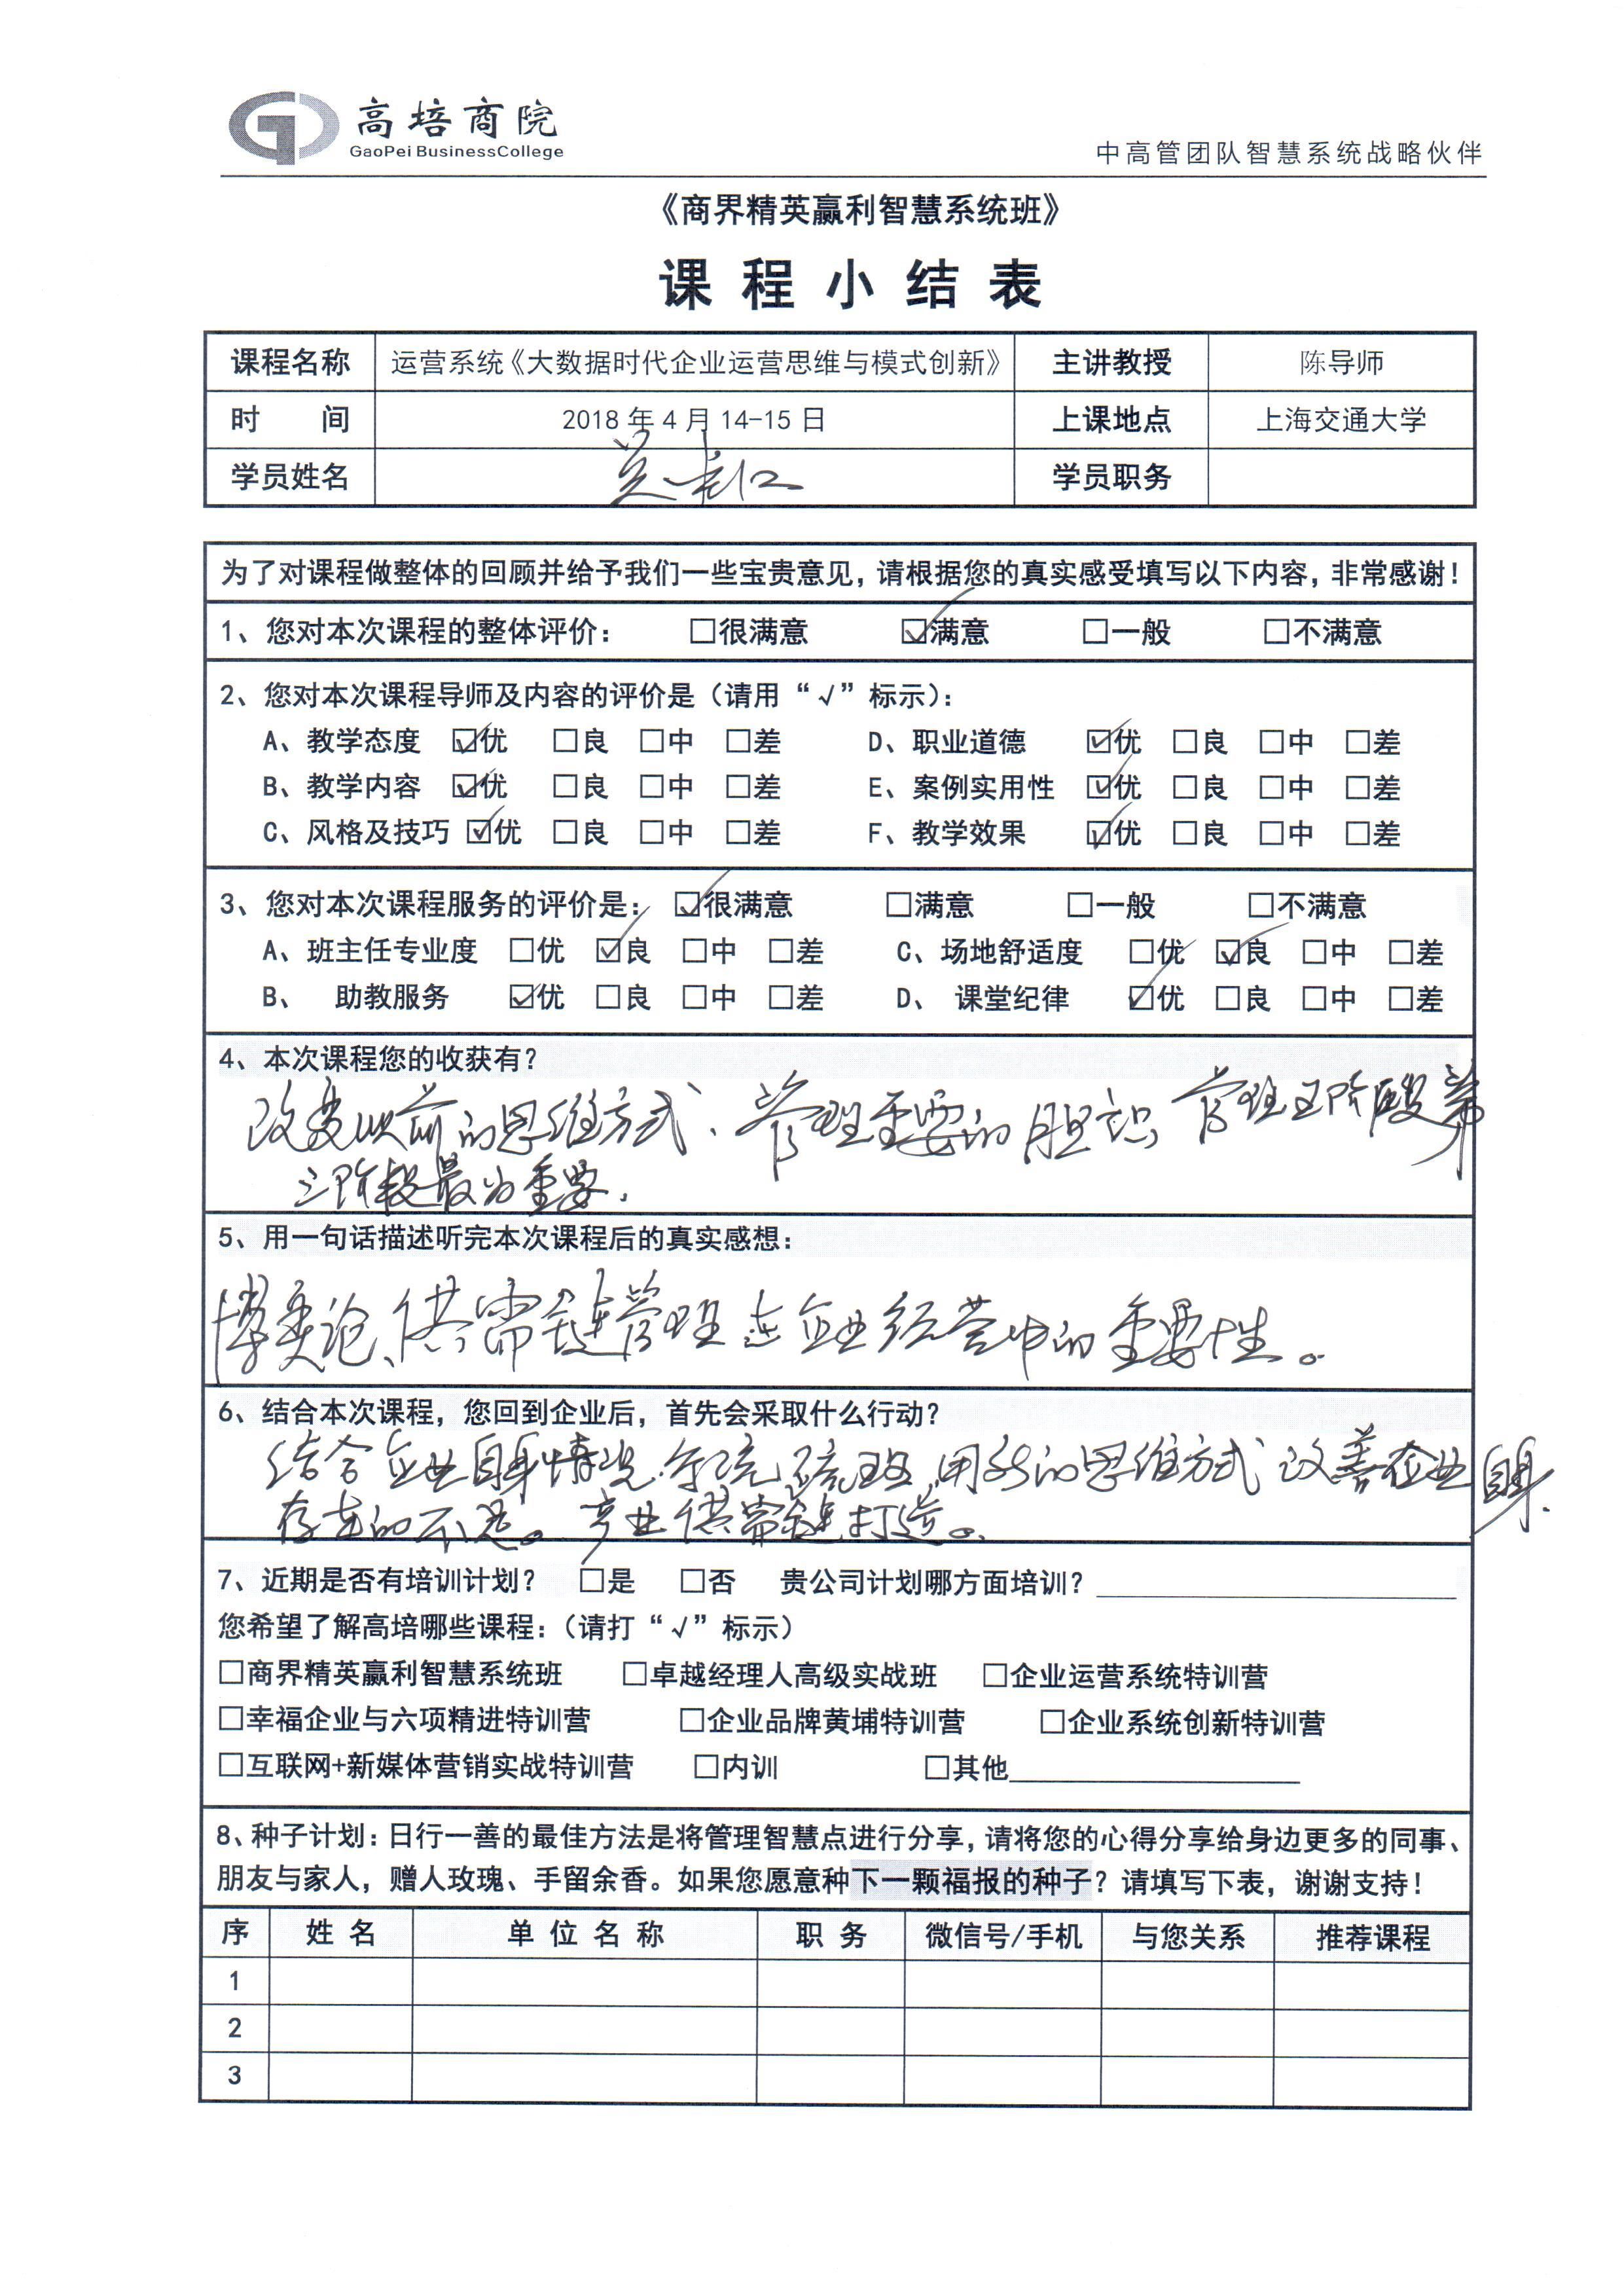 高培商院
GaoPei BusinessCollege
中高管团队智慧系统战略伙伴
《商界精英赢利智慧系统班》
课程小结表
课程名称 运营系统《大数据时代企业运营思维与模式创新》 主讲教授 陈导师
时 间 2018 年 4 月 14-15 日 上课地点 上海交通大学
学员姓名 学员职务
为了对课程做整体的回顾并给予我们一些宝贵意见，请根据您的真实感受填写以下内容，非常感谢！
1、您对本次课程的整体评价： □很满意 ☑满意 □一般 □不满意
2、您对本次课程导师及内容的评价是（请用“√”标示）：
A、教学态度 ☑优 □良 □中 □差 D、职业道德 ☑优 □良 □中 □差
B、教学内容 ☑优 □良 □中 □差 E、案例实用性 ☑优 □良 □中 □差
C、风格及技巧 ☑优 □良 □中 □差 F、教学效果 ☑优 □良 □中 □差
3、您对本次课程服务的评价是： ☑很满意 □满意 □一般 □不满意
A、班主任专业度 □优 ☑良 □中 □差 C、场地舒适度 □优 ☑良 □中 □差
B、 助教服务 ☑优 □良 □中 □差 D、 课堂纪律 ☑优 □良 □中 □差
4、本次课程您的收获有？
改变以前的思维方式、管理重要的胆识 管理五阶段第
三阶段最为重要.
5、用一句话描述听完本次课程后的真实感想：
博弈论、供需链管理在企业经营中的重要性。
6、结合本次课程，您回到企业后，首先会采取什么行动？
结合企业自身情况 用新的思维方式改善企业自身.
存在的不足。产业供需链打造。
7、近期是否有培训计划？ □是 □否 贵公司计划哪方面培训？
您希望了解高培哪些课程：（请打“√”标示）
□商界精英赢利智慧系统班 □卓越经理人高级实战班 □企业运营系统特训营
□幸福企业与六项精进特训营 □企业品牌黄埔特训营 □企业系统创新特训营
□互联网+新媒体营销实战特训营 □内训 □其他
8、种子计划：日行一善的最佳方法是将管理智慧点进行分享，请将您的心得分享给身边更多的同事、
朋友与家人，赠人玫瑰、手留余香。如果您愿意种下一颗福报的种子？请填写下表，谢谢支持！
序 姓 名 单 位 名 称 职 务 微信号/手机 与您关系 推荐课程
1
2
3